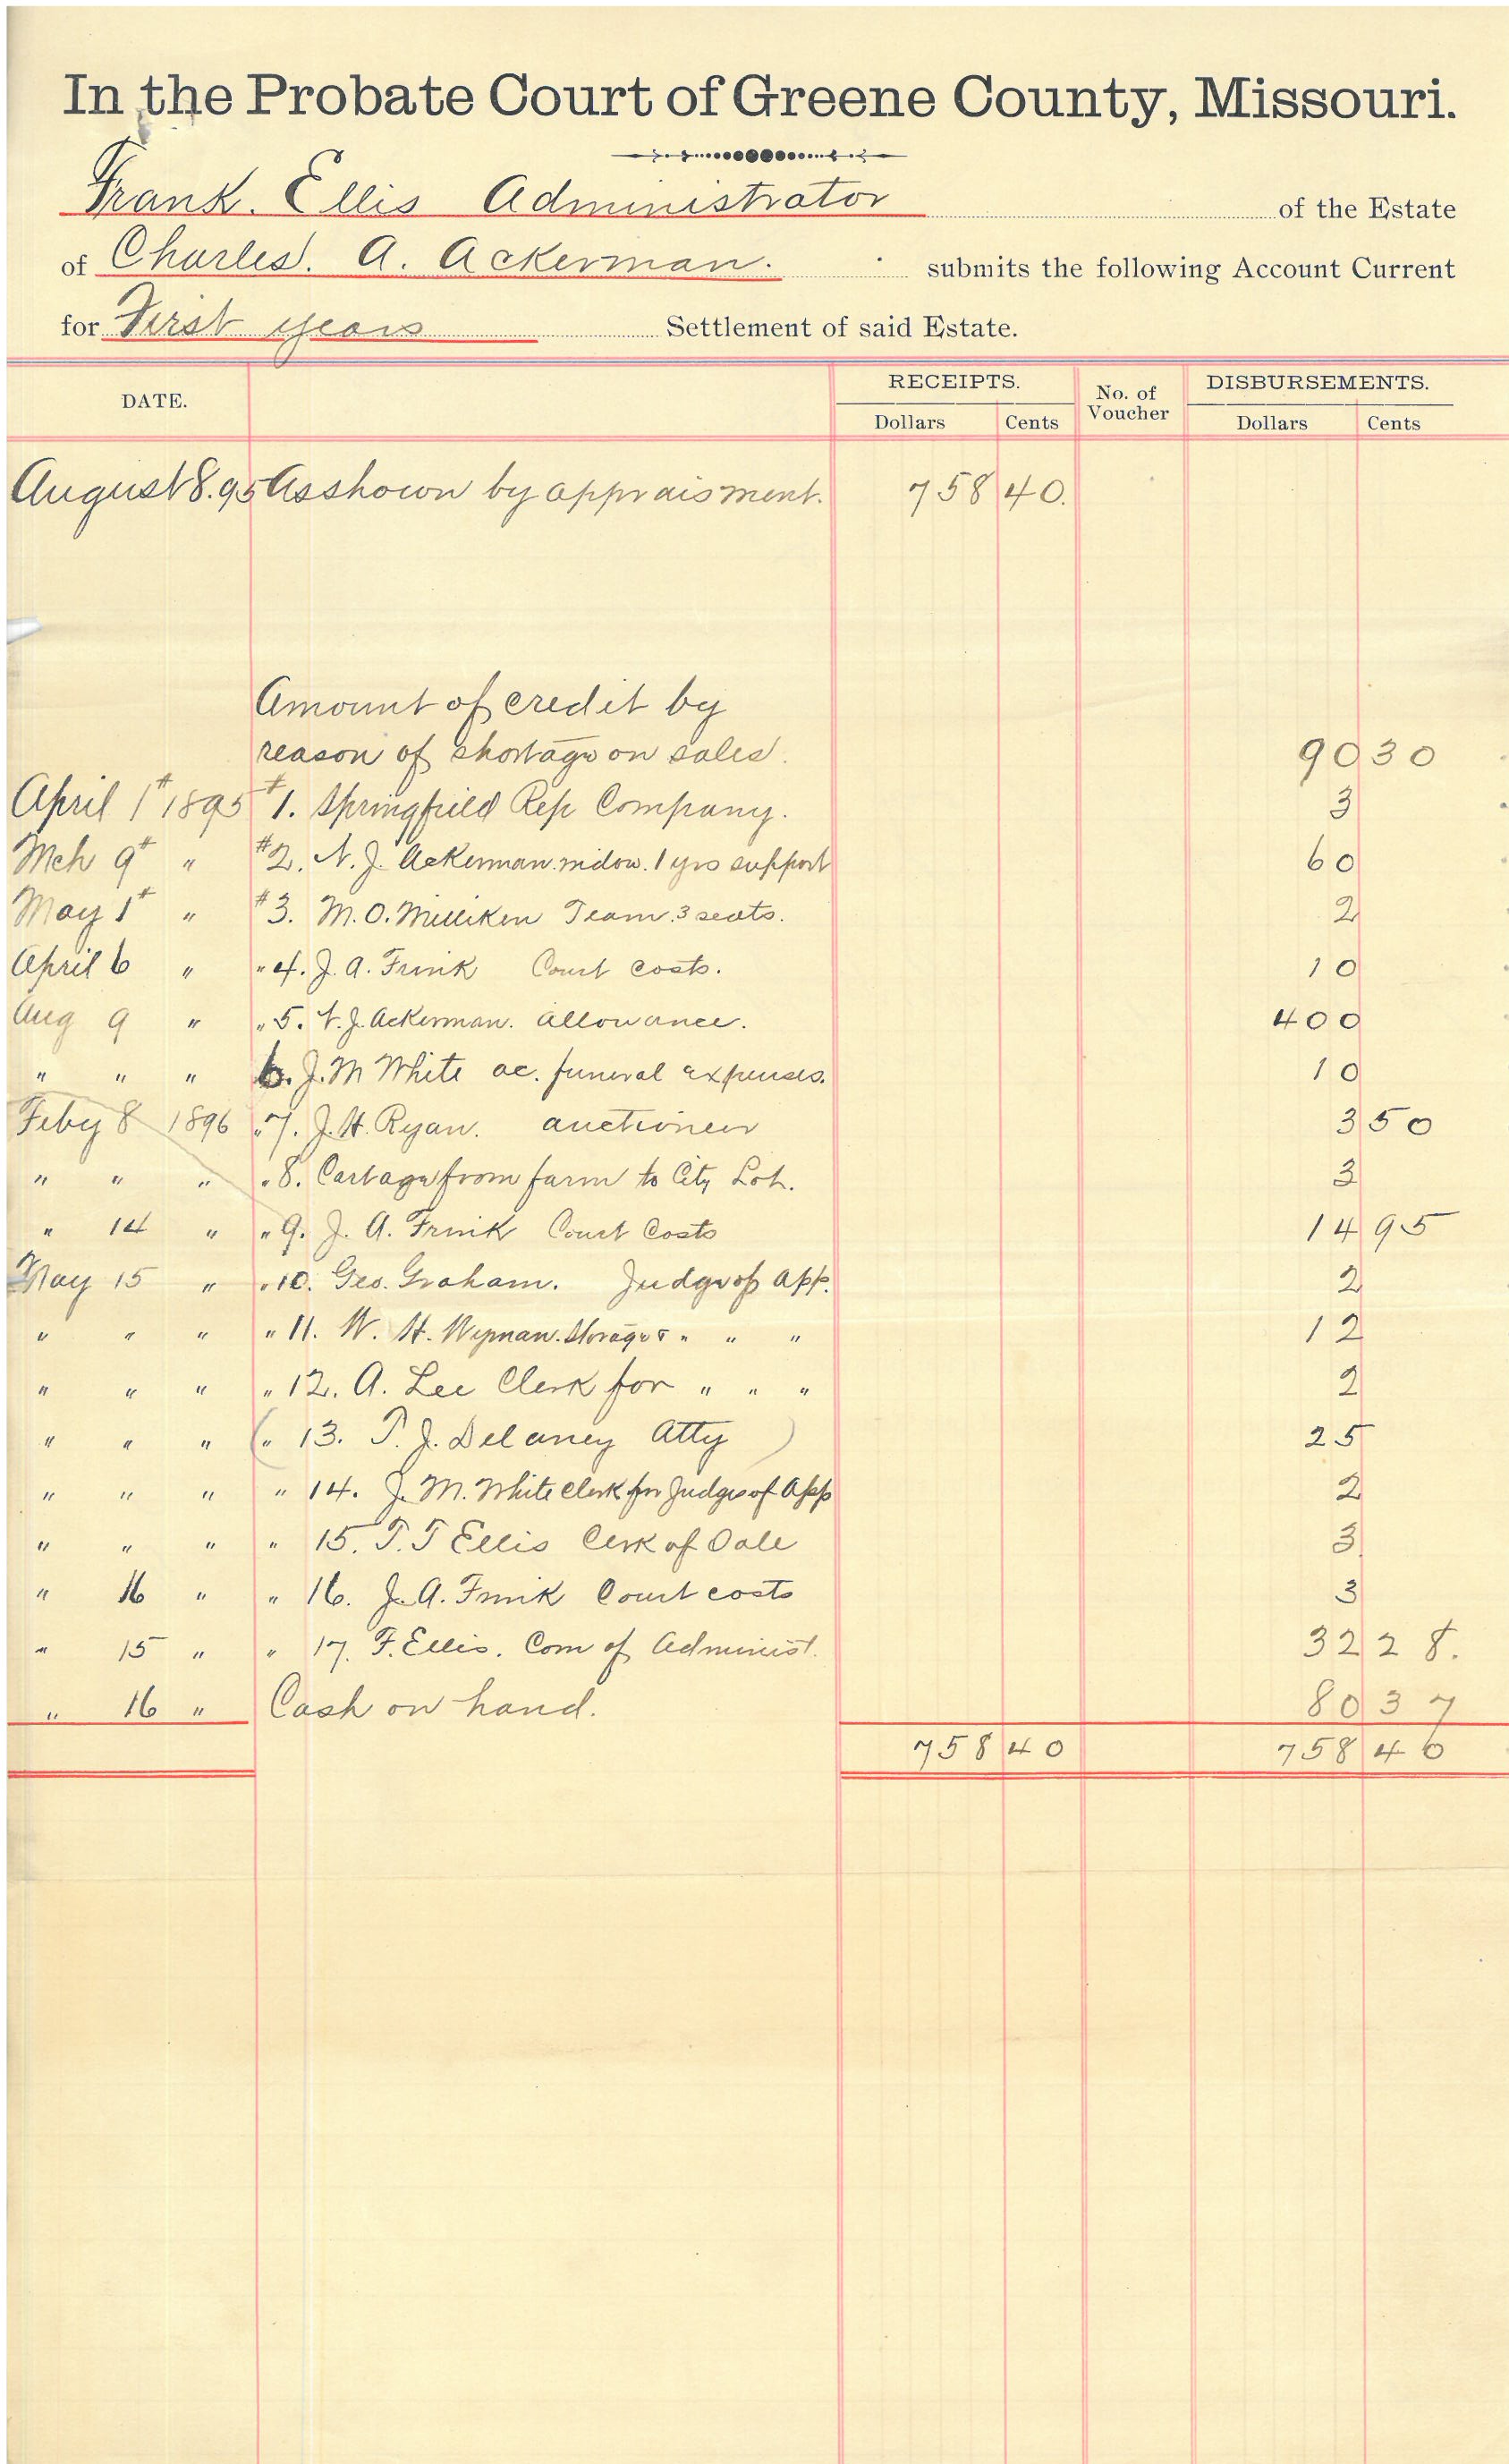 In the Probate Court of Greene County, Missouri.
Frank. Ellis Administrator of the Estate
of Charles. A. Ackerman. submits the following Account Current
for First years Settlement of said Estate.
DATE. RECEIPTS. No. of Voucher DISBURSEMENTS.
Dollars Cents Dollars Cents
August 8. 95 As shown by appraisment. 758 40.
Amount of credit by
reason of shortage on sales. 90 30
April 1st 1895 #1. Springfield Rep Company. 3
Mch 9t " #2. N. J. Ackerman. widow. 1 yrs support 60
May 1t " #3. M. O. Milliken Team. 3 seats. 2
April 6 " " 4. J. A. Frink Court costs. 10
Aug 9 " " 5. N. J. Ackerman. allowance. 400
" " " 6. J. M White ac. funeral expenses. 10
Feby 8 1896 " 7. J. H. Ryan. auctioneer 3 50
" " " " 8. Cartage from farm to City Lot. 3
" 14 " " 9. J. A. Frink Court Costs 14 95
May 15 " " 10. Geo. Graham. Judge of App. 2
" " " " 11. W. H. Wyman. Storage & " " " 12
" " " " 12. A. Lee Clerk for " " " 2
" " " (" 13. P. J. Delaney Atty ) 25
" " " " 14. J. M. White clerk for Judges of App 2
" " " " 15. T. T Ellis Clerk of Sale 3
" 16 " " 16. J. A. Frink Court costs 3
" 15 " " 17. F. Ellis. Com of Administ. 32 28.
" 16 " Cash on hand. 80 37
758 40 758 40